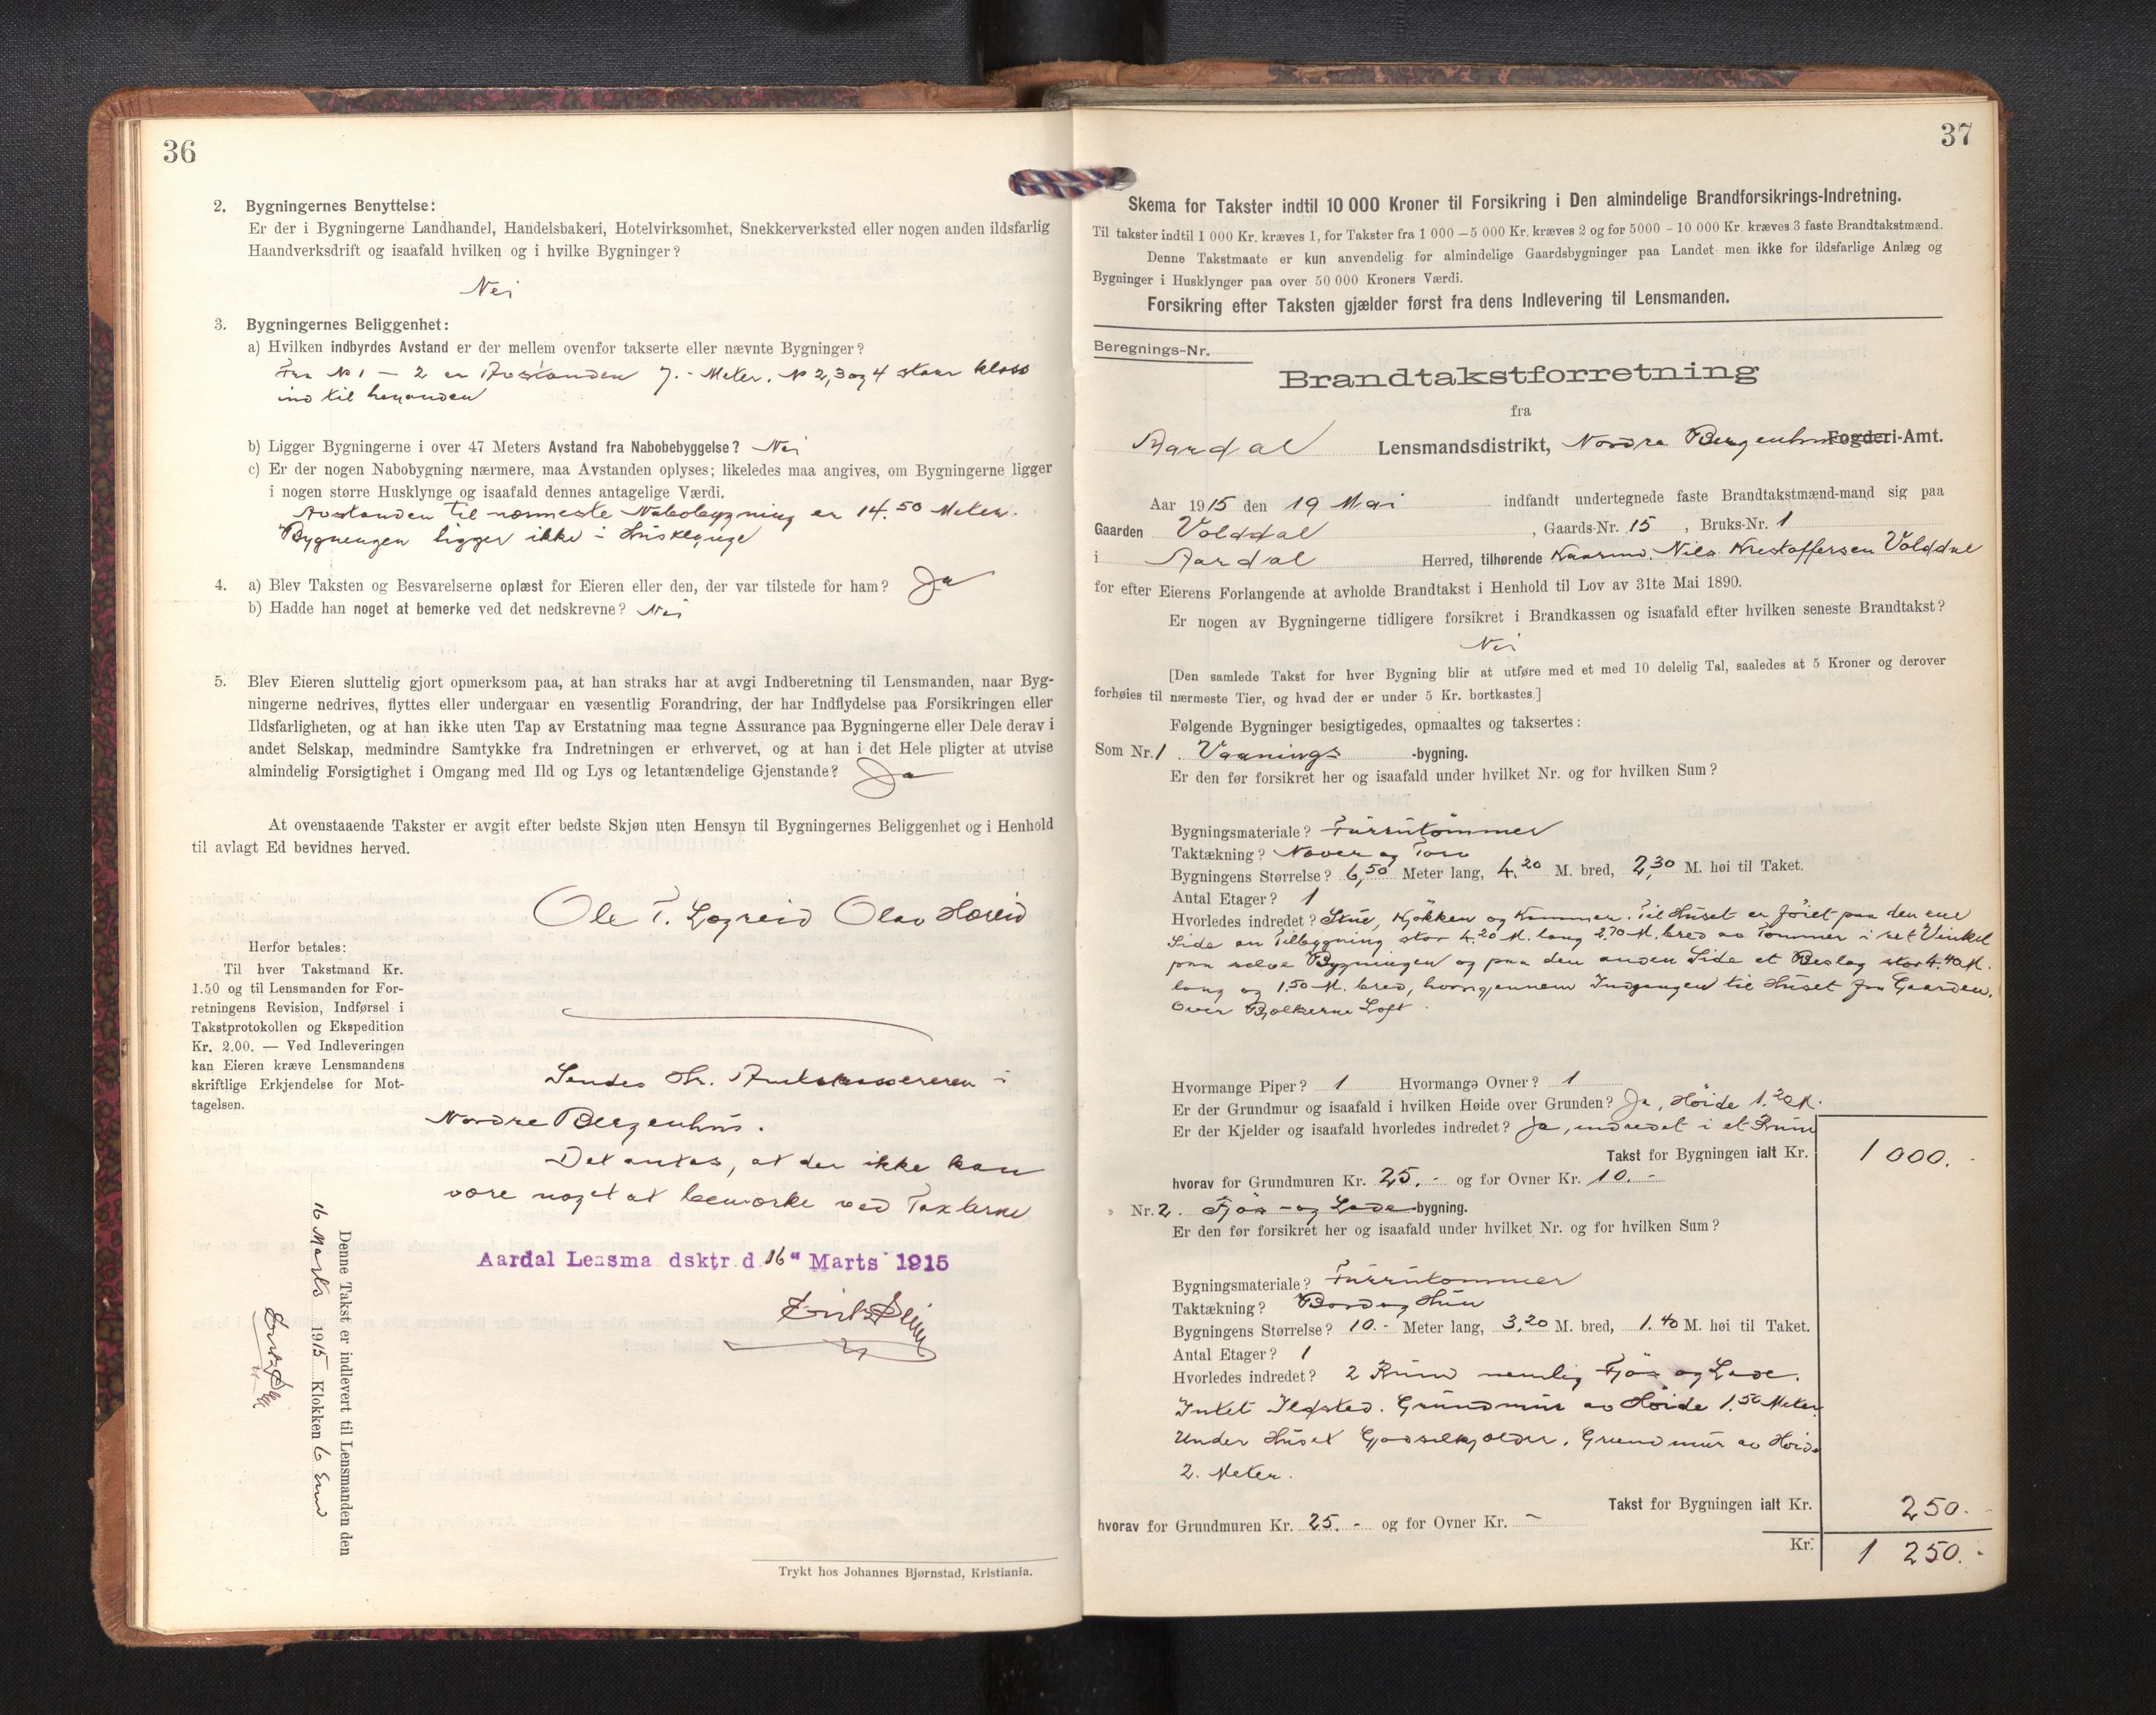 36
2. Bygningernes Benyttelse:
Er der i Bygningerne Landhandel, Handelsbakeri, Hotelvirksomhet, Snekkerverksted eller nogen anden ildsfarlig
Haandverksdrift og isaafald hvilken og i hvilke Bygninger?
Nei
3. Bygningernes Beliggenhet:
a) Hvilken indbyrdes Avstand er der mellem ovenfor takserte eller nævnte Bygninger?
Fra No 1 – 2 er Avstanden 7.- Meter. No 2, 3 og 4 staar kloss
ind til henanden
b) Ligger Bygningerne i over 47 Meters Avstand fra Nabobebyggelse? Nei
c) Er der nogen Nabobygning nærmere, maa Avstanden oplyses; likeledes maa angives, om Bygningerne ligger
i nogen større Husklynge og isaafald dennes antagelige Værdi.
Avstanden til nærmeste Nabobygning er 14.50 Meter.
Bygningen ligger ikke i Husklynge
4. a) Blev Taksten og Besvarelserne oplæst for Eieren eller den, der var tilstede for ham? Ja
b) Hadde han noget at bemerke ved det nedskrevne? Nei
5. Blev Eieren sluttelig gjort opmerksom paa, at han straks har at avgi Indberetning til Lensmanden, naar Byg-
ningerne nedrives, flyttes eller undergaar en væsentlig Forandring, der har Indflydelse paa Forsikringen eller
Ildsfarligheten, og at han ikke uten Tap av Erstatning maa tegne Assurance paa Bygningerne eller Dele derav i
andet Selskap, medmindre Samtykke fra Indretningen er erhvervet, og at han i det Hele pligter at utvise
almindelig Forsigtighet i Omgang med Ild og Lys og letantændelige Gjenstande? Ja
At ovenstaaende Takster er avgit efter bedste Skjøn uten Hensyn til Bygningernes Beliggenhet og i Henhold
til avlagt Ed bevidnes herved.
Ole T. Lægreid Olav Hæreid
Herfor betales:
Til hver Takstmand Kr.
1.50 og til Lensmanden for For-
retningens Revision, Indførsel i
Takstprotokollen og Ekspedition
Kr. 2.00. — Ved Indleveringen
kan Eieren kræve Lensmandens
skriftlige Erkjendelse for Mot-
tagelsen.
Sendes Hr. Amtskassereren i
Nordre Bergenhus.
Det antas, at der ikke kan
være noget at bemærke ved Taxterne
Aardal Lensma dsktr d. 16 " Marts 1915
Denne Takst er indlevert til Lensmanden den
16 Marts 1915 Klokken 6 Emd
Trykt hos Johannes Bjørnstad, Kristiania.
37
Skema for Takster indtil 10 000 Kroner til Forsikring i Den almindelige Brandforsikrings-Indretning.
Til takster indtil 1 000 Kr. kræves 1, for Takster fra 1 000 — 5 000 Kr. kræves 2 og for 5000 - 10 000 Kr. kræves 3 faste Brandtakstmænd.
Denne Takstmaate er kun anvendelig for almindelige Gaardsbygninger paa Landet men ikke for ildsfarlige Anlæg og
Bygninger i Husklynger paa over 50 000 Kroners Værdi.
Forsikring efter Taksten gjælder først fra dens Indlevering til Lensmanden.
Beregnings-Nr.
Brandtakstforretning
fra
Aardal Lensmandsdistrikt, Nordre Bergenhus Fogderi-Amt.
Aar 1915 den 19 Mai indfandt undertegnede faste Brandtakstmænd-mand sig paa
Gaarden Volddal, Gaards-Nr. 15, Bruks-Nr. 1
i Aardal Herred, tilhørende Kaarmd. Nils Kristoffersen Volddal
for efter Eierens Forlangende at avholde Brandtakst i Henhold til Lov av 31te Mai 1890.
Er nogen av Bygningerne tidligere forsikret i Brandkassen og isaafald efter hvilken seneste Brandtakst?
Nei
[Den samlede Takst for hver Bygning blir at utføre med et med 10 delelig Tal, saaledes at 5 Kroner og derover
forhøies til nærmeste Tier, og hvad der er under 5 Kr. bortkastes.]
Følgende Bygninger besigtigedes, opmaaltes og taksertes:
Som Nr. 1 Vaanings -bygning.
Er den før forsikret her og isaafald under hvilket Nr. og for hvilken Sum?
Bygningsmateriale? Furrutømmer
Taktækning? Næver og Torv
Bygningens Størrelse? 6,50 Meter lang, 4.20 M. bred, 2,30 M. høi til Taket.
Antal Etager? 1
Hvorledes indredet? Stue, Kjøkken og Kammer. Til Huset er føiet paa den ene
Side en Tilbygning stor 4.20 M. lang 2.70 M. bred av Tømmer i ret Vinkel
paa selve Bygningen og paa den anden Side et Beslag stor 4.40 M.
lang og 1.50 M. bred, hvorigjennem Indgangen til Huset fra Gaarden.
Over Bjelkerne Loft
Hvormange Piper? 1 Hvormange Ovner? 1
Er der Grundmur og isaafald i hvilken Høide over Grunden? Ja, Høide 1.20 M.
Er der Kjelder og isaafald hvorledes indredet? Ja, indredet i et Rum
Takst for Bygningen ialt Kr. 1 000.-
hvorav for Grundmuren Kr. 25.- og for Ovner Kr. 10.-
Nr. 2. Fjøs - og Lade-bygning.
Er den før forsikret her og isaafald under hvilket Nr. og for hvilken Sum?
Bygningsmateriale? Furrutømmer
Taktækning? Bord og Hun
Bygningens Størrelse? 10.- Meter lang, 3,20 M. bred, 1.40 M. høi til Taket.
Antal Etager? 1
Hvorledes indredet? 2 Rum nemlig Fjøs og Lade.
Intet Ildsted. Grundmur av Høide 1.50 Meter.
Under Huset Gjødselkjelder. Grundmur av Høide
2. Meter.
Takst for Bygningen ialt Kr. 250.-
hvorav for Grundmuren Kr. 25.- og for Ovner Kr. -
Kr. 1 250.-